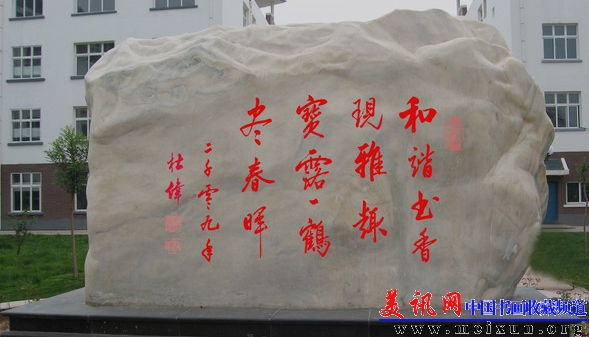 和諧书香
現雅趣
寶露一鶴
尽春晖
二千零九年
杜偉
美讯网 中国书画收藏频道
www.meixun.org